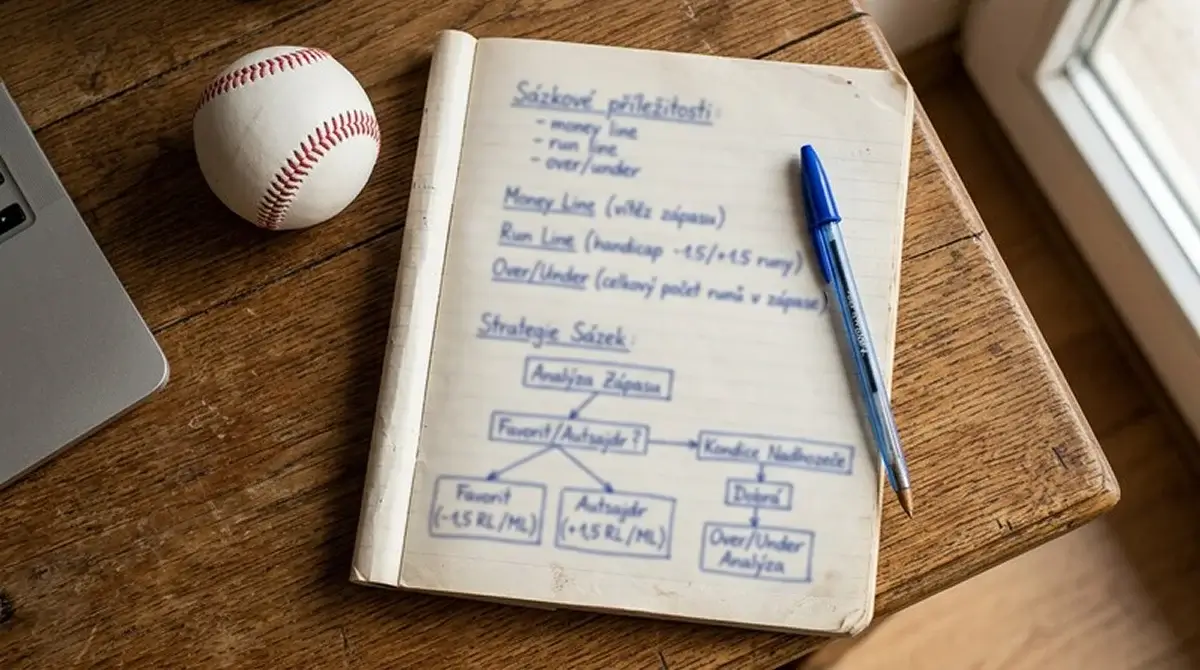 Sázkové příležitosti:
- money line
- run line
- over/under
Money Line (vítěz zápasu)
Run Line (handicap -1.5/+1.5 runy)
Over/Under (celkový počet runů v zápase)
Strategie Sázek:
Analýza Zápasu
Favorit/Autsajdr?
Kondice Nadhozeče
Favorit
(-1,5 RL/ML)
Autsajdr
(+1,5 RL/ML)
Dobrá
Over/Under
Analýza